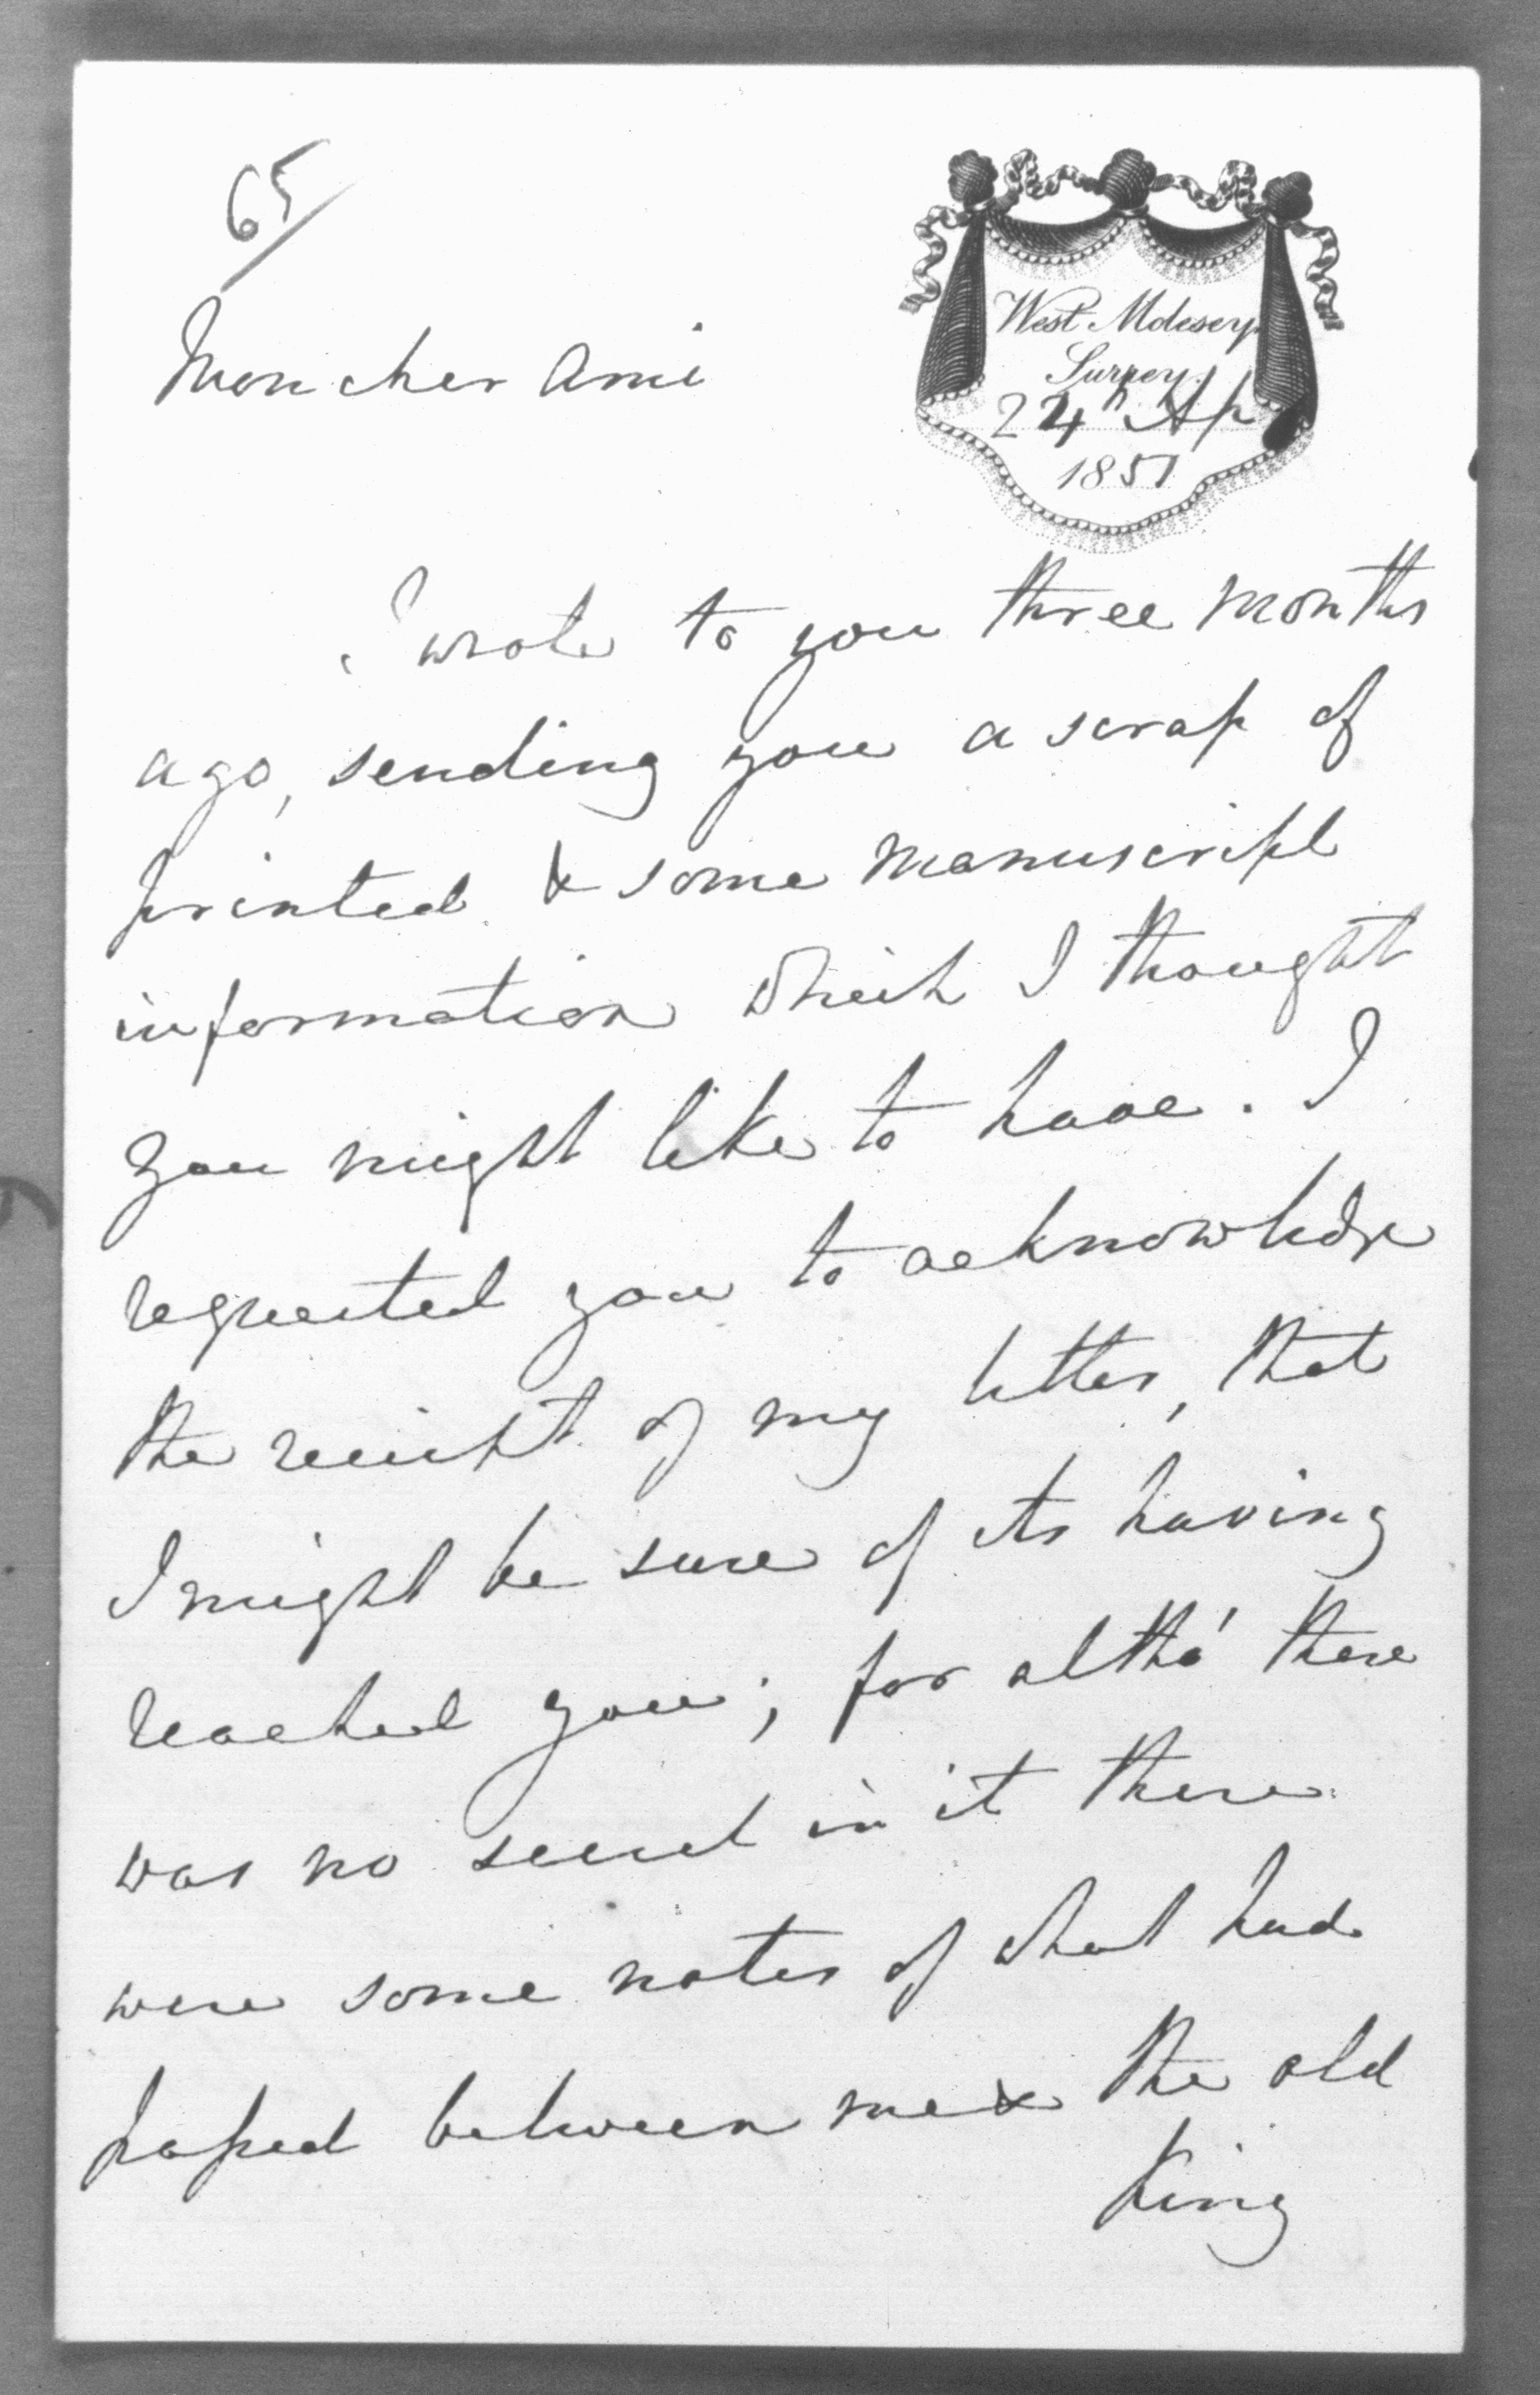 65
West Molesey.
Surrey.
24th Ap
1851
Mon cher Ami
I wrote to you three months
ago, sending you a scrap of
printed & some manuscript
information which I thought
you might like to have. I
requested you to acknowledge
the receipt of my letter, that
I might be sure of its having
reached you; for altho' there
was no secret in it there
were some notes of what had
passed between me & the old
King